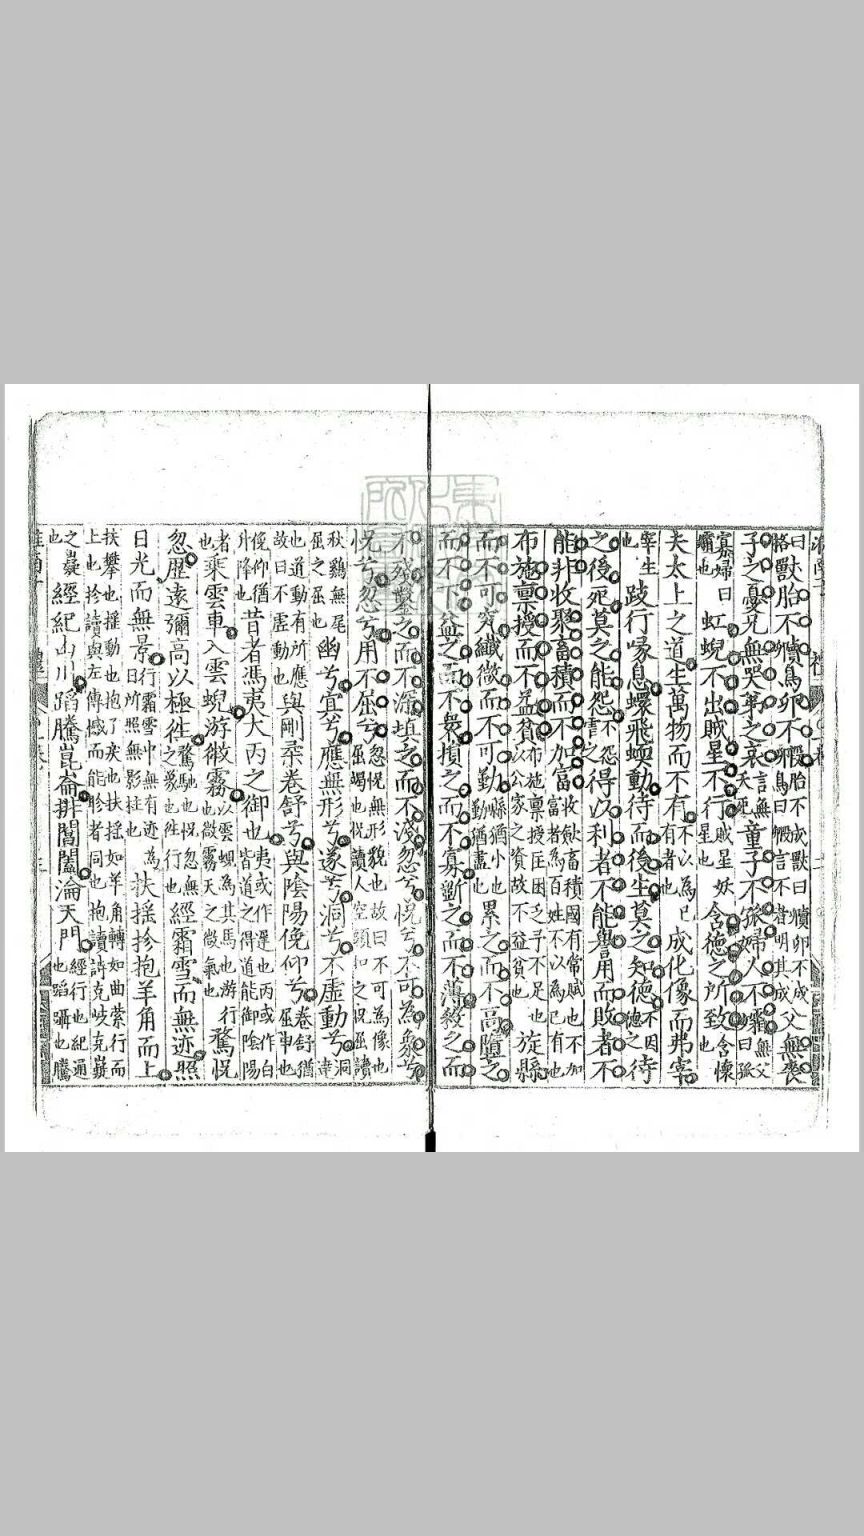 曰骼獸胎不殰鳥卵不毈胎不成獸曰殰卵不成鳥曰毈言不者明其成父無喪
子之憂兄無哭弟之哀言無夭死童子不孤婦人不孀無父曰孤
寡婦曰孀也虹蜺不出賊星不行賊星妖星也含德之所致也含懷
夫太上之道生萬物而不有不以為己有者也成化像而弗宰
宰主也跂行喙息蠉飛蝡動待而後生莫之知德不因德之待
之後死莫之能怨不怨之得以利者不能譽用而敗者不
能非收聚畜積而不加富收斂畜積國有常賦也不加富者為百姓不以為己有也
布施稟授而不益貧布施稟授匡困乏予不足也以公家之資故不益貧也旋縣
而不可究纖微而不可勤縣猶小也勤猶盡也累之而不高墮之
而不下益之而不衆損之而不寡斲之而不薄殺之而
不殘鑿之而不深填之而不淺忽兮怳兮不可為象兮
怳兮忽兮用不屈兮忽怳無形貌也故曰不可為像也屈竭也怳讀人空頭扣之怳屈讀
秋雞無尾屈之屈也幽兮冥兮應無形兮遂兮洞兮不虛動兮洞達
也道動有所應故曰不虛動也與剛柔卷舒兮與陰陽俛仰兮卷舒猶屈申也
俛仰猶升降也昔者馮夷大丙之御也夷或作遲也丙或作白皆道之得道能御陰陽
者也乘雲車入雲蜺游微霧以雲蜺為其馬也游行也微霧天之微氣也騖怳
忽歷遠彌高以極往騖馳也怳忽無之象也往行也經霜雪而無迹照
日光而無景行霜雪中無有迹為日所照無影柱也扶搖抮抱羊角而上
扶攀也搖動也抱了戾也扶搖如羊角轉如曲縈行而上也抮讀與左傳憾而能眕者同也抱讀詩克岐克嶷
之嶷也經紀山川蹈騰崑崙排閶闔淪天門經行也紀通也蹈躡也騰
淮南子